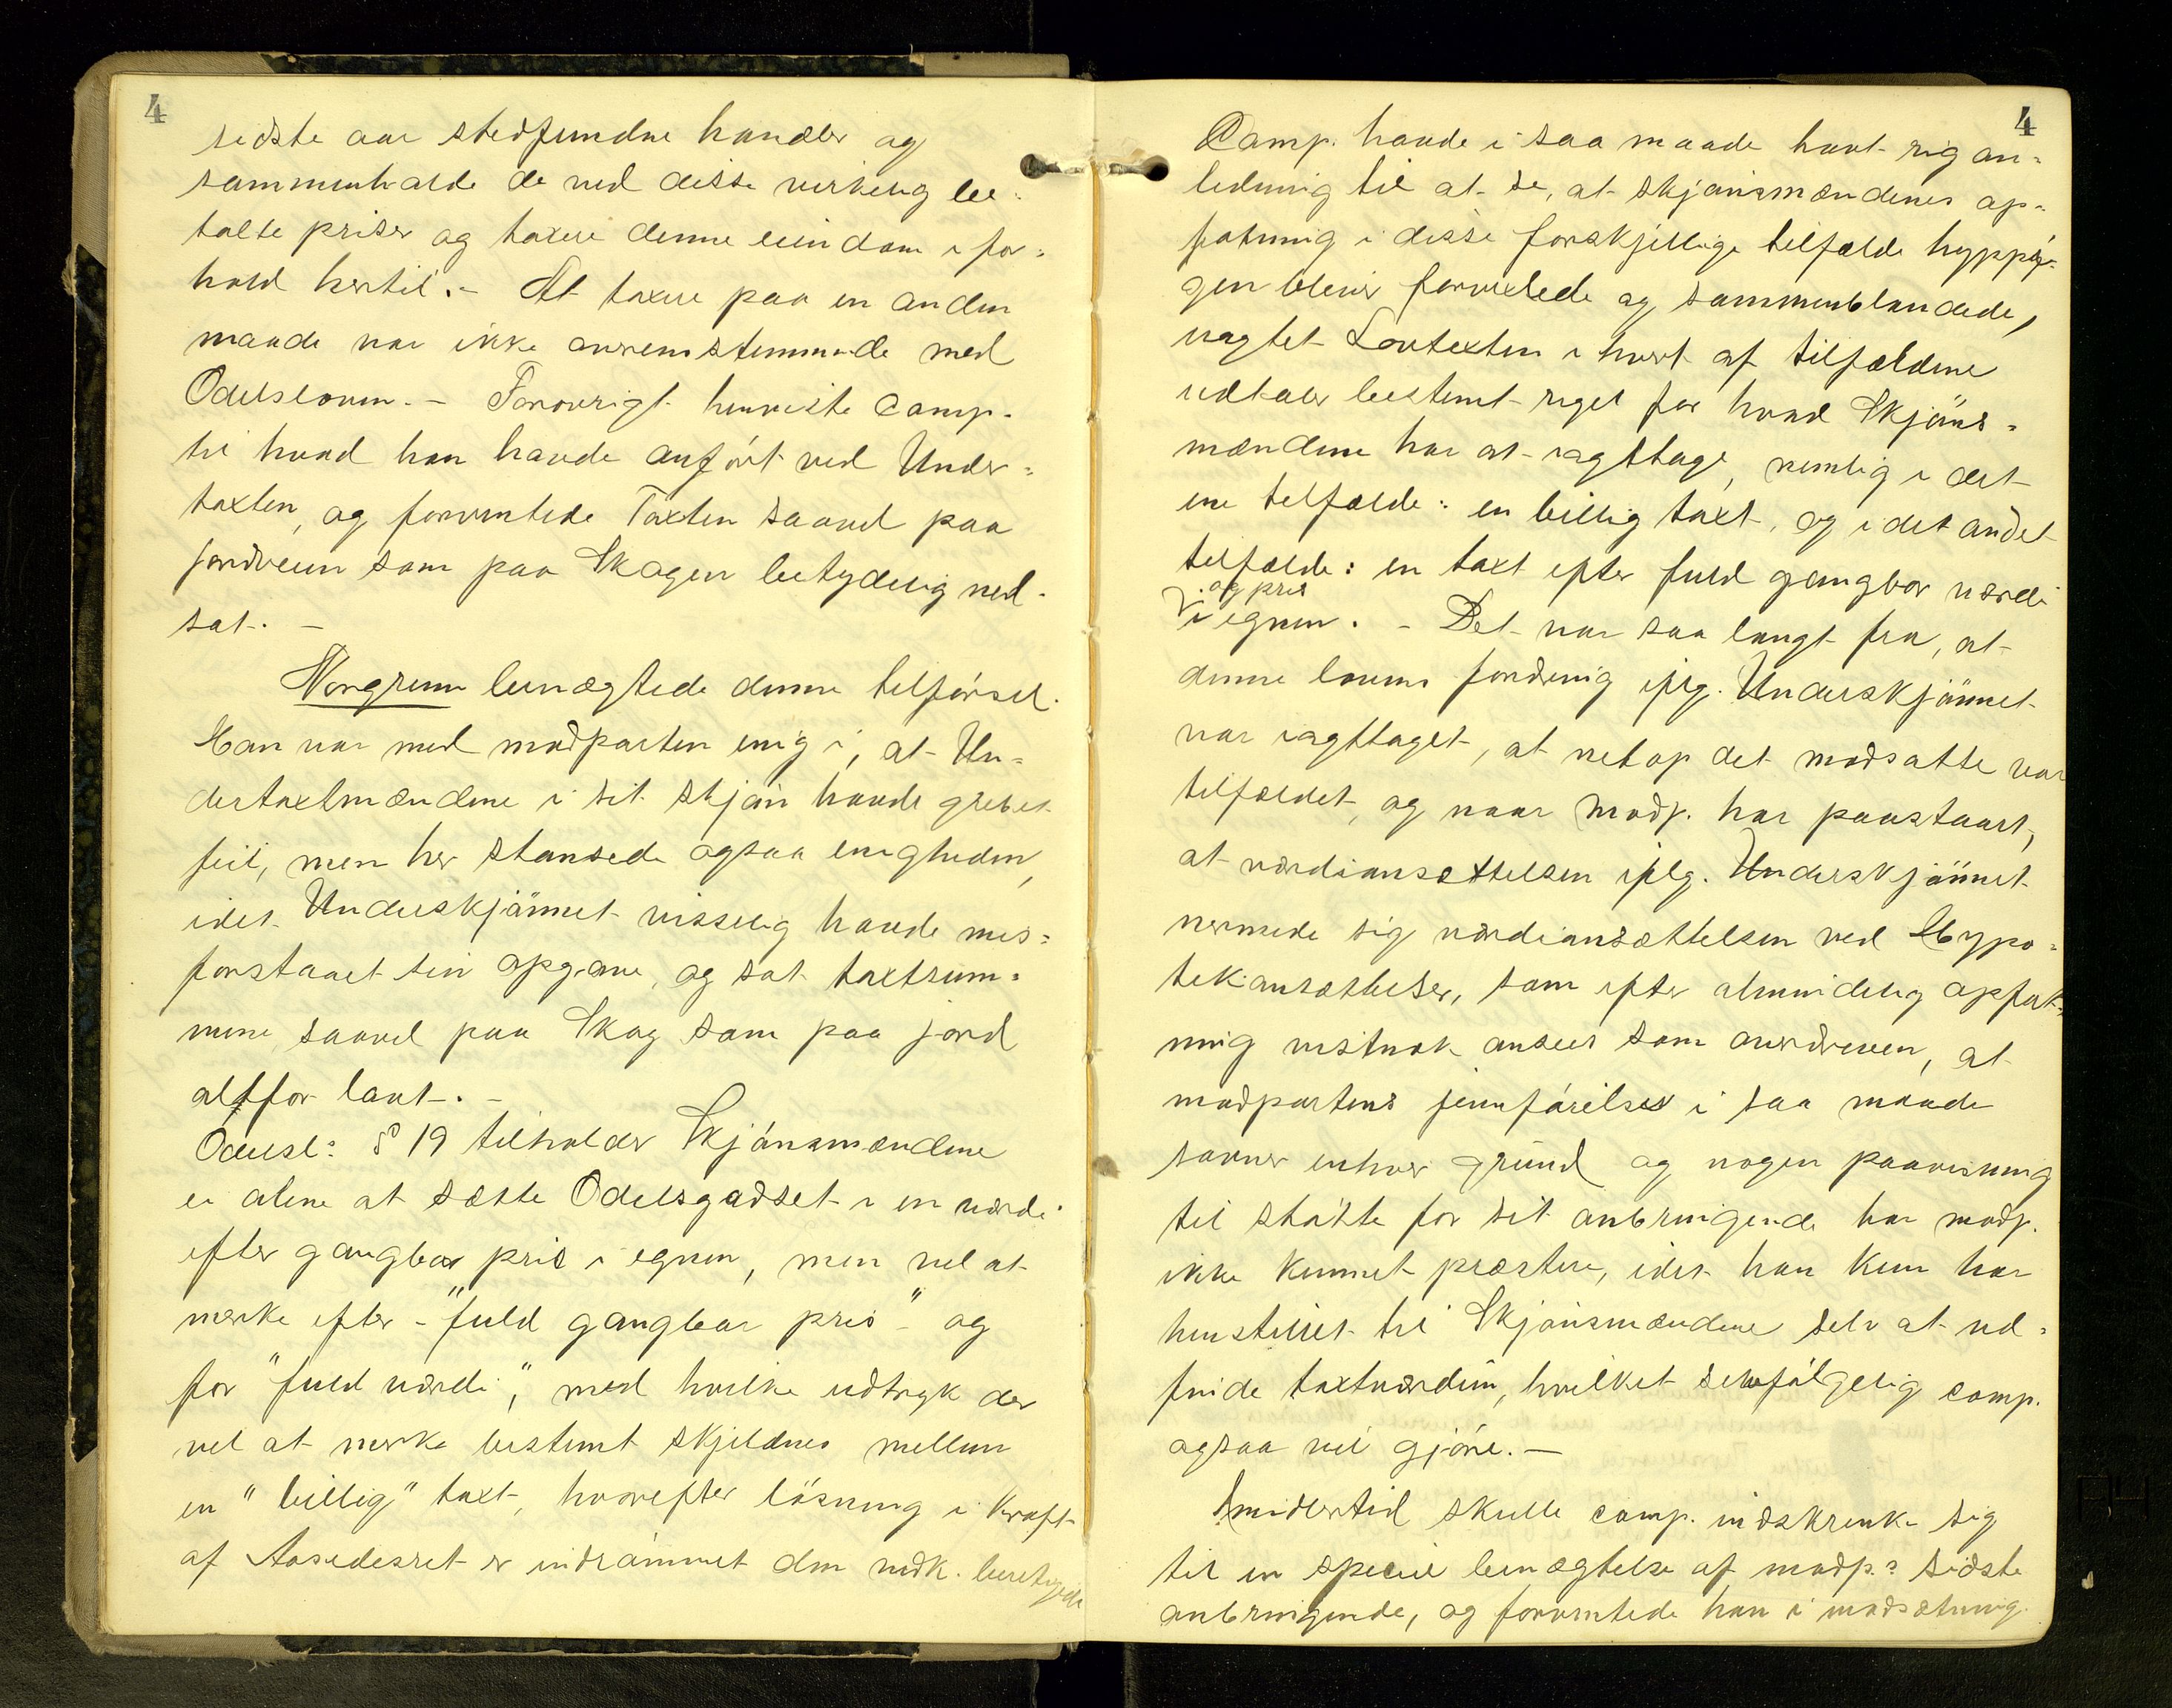 4
sidste aar stedfundne handler og
sammenholde de ved disse virkelig be-
talte priser og taxere denne eiendom i for-
hold hertil. - At taxere paa en anden
maade var ikke overensstemmende med
Odelsloven. - Forøvrigt henviste Comp.
til hvad han havde anført ved Under-
taxten, og forventede Taxten saavel paa
jordveien som paa Skogen betydelig ned-
sat. -
Norgrenn benægtede denne tilførsel.
Han var med modparten enig i, at Un-
dertaxtmændene i sit skjøn havde grebet
feil, men her stansede ogsaa enigheden,
idet Underskjønnet visselig havde mis-
forstaaet sin opgave, og sat taxtsum-
mene, saavel paa Skog som paa jord
altfor lavt. -
Odelsl: § 19 tilholder Skjønsmændene
ei alene at sætte Odelsgodset i en værdi
efter gangbar pris i egnen, men vel at
merke efter - "fuld gangbar pris" - og
for "fuld værdi", med hvilke udtryk der
vel at merke bestemt skjeldnes mellem
en "billig" taxt, hvorefter løsning i kraft
af Aasædesret er indrømmet den vedk. berettigede
4
Comp. havde i saa maade havt rig an-
ledning til at se, at skjønsmændenes op-
fatning i disse forskjellige tilfælde hyppi-
gen bleve forvexlede og sammenblandede,
uagtet Lovtexten i hvert af tilfældene
udtaler bestemt regel for hvad Skjøns-
mændene har at iagttage, nemlig i det
ene tilfælde: en billig taxt, og i det andet
tilfælde: en taxt efter fuld gangbar værdi
og pris
i egnen. - Det var saa langt fra, at
denne lovens fordring iflg. Underskjønnet
var iagttaget, at netop det modsatte var
tilfældet, og naar modp. har paastaaet,
at værdiansættelsen iflg. Underskjønnet
nermede sig værdiansættelsen ved Hypo-
tekansættelser, som efter almindelig opfat-
ning vistnok ansees som overdreven, at
modpartens jevnførelse i saa maade
savner enhver grund og nogen paavisning
til støtte for sit anbringende har modp.
ikke kunnet præstere, idet han kun har
henstillet til Skjønsmændene selv at ud-
finde taxtværdien, hvilket selvfølgelig comp.
ogsaa vil gjøre. -
Imidlertid skulle comp. indskrenke sig
til en speciel benægtelse af modp.s sidste
anbringende, og forventede han i modsætning